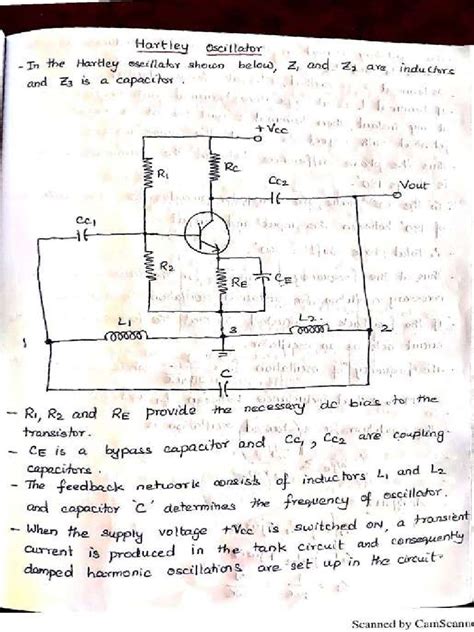 Hartley Oscillator
- In the Hartley oscillator shown below, Z1 and Z2 are inductors
and Z3 is a capacitor.
+Vcc
R1
RC
CC2
Vout
CC1
R2
RE
CE
L1
3
L2
1
2
C
- R1, R2 and RE provide the necessary dc bias to the
transistor.
- CE is a bypass capacitor and CC1, CC2 are coupling
capacitors.
- The feedback network consists of inductors L1 and L2
and capacitor 'C' determines the frequency of oscillator.
- When the supply voltage +Vcc is switched on, a transient
current is produced in the tank circuit and consequently
damped harmonic oscillations are set up in the circuit.
Scanned by CamScanner